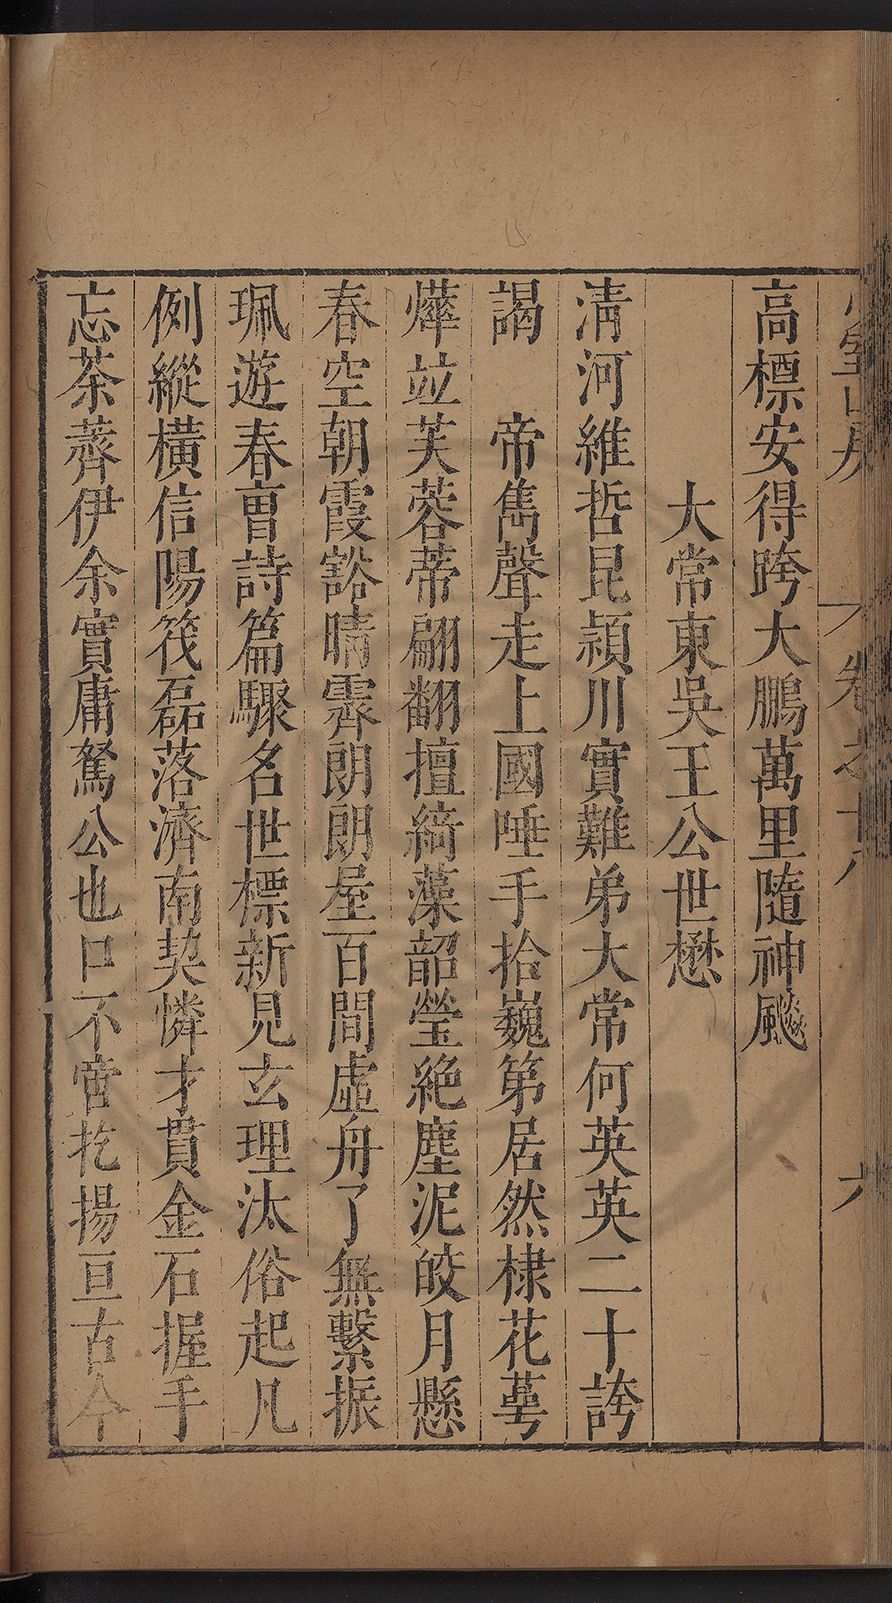 高標安得跨大鵬萬里隨神飈
大常東吳王公世懋
淸河維哲昆潁川實難弟大常何英英二十誇
謁 帝雋聲走上國唾手拾巍第居然棣花萼
燁竝芙蓉蒂翩翻擅綺藻韶瑩絶塵泥皎月懸
春空朝霞豁晴霽朗朗屋百間虛舟了無繫振
珮遊春曺詩篇驟名世標新見玄理汰俗起凡
例縱橫信陽筏磊落濟南契憐才貫金石握手
忘茶薺伊余實庸駑公也口不啻扢揚亘古今